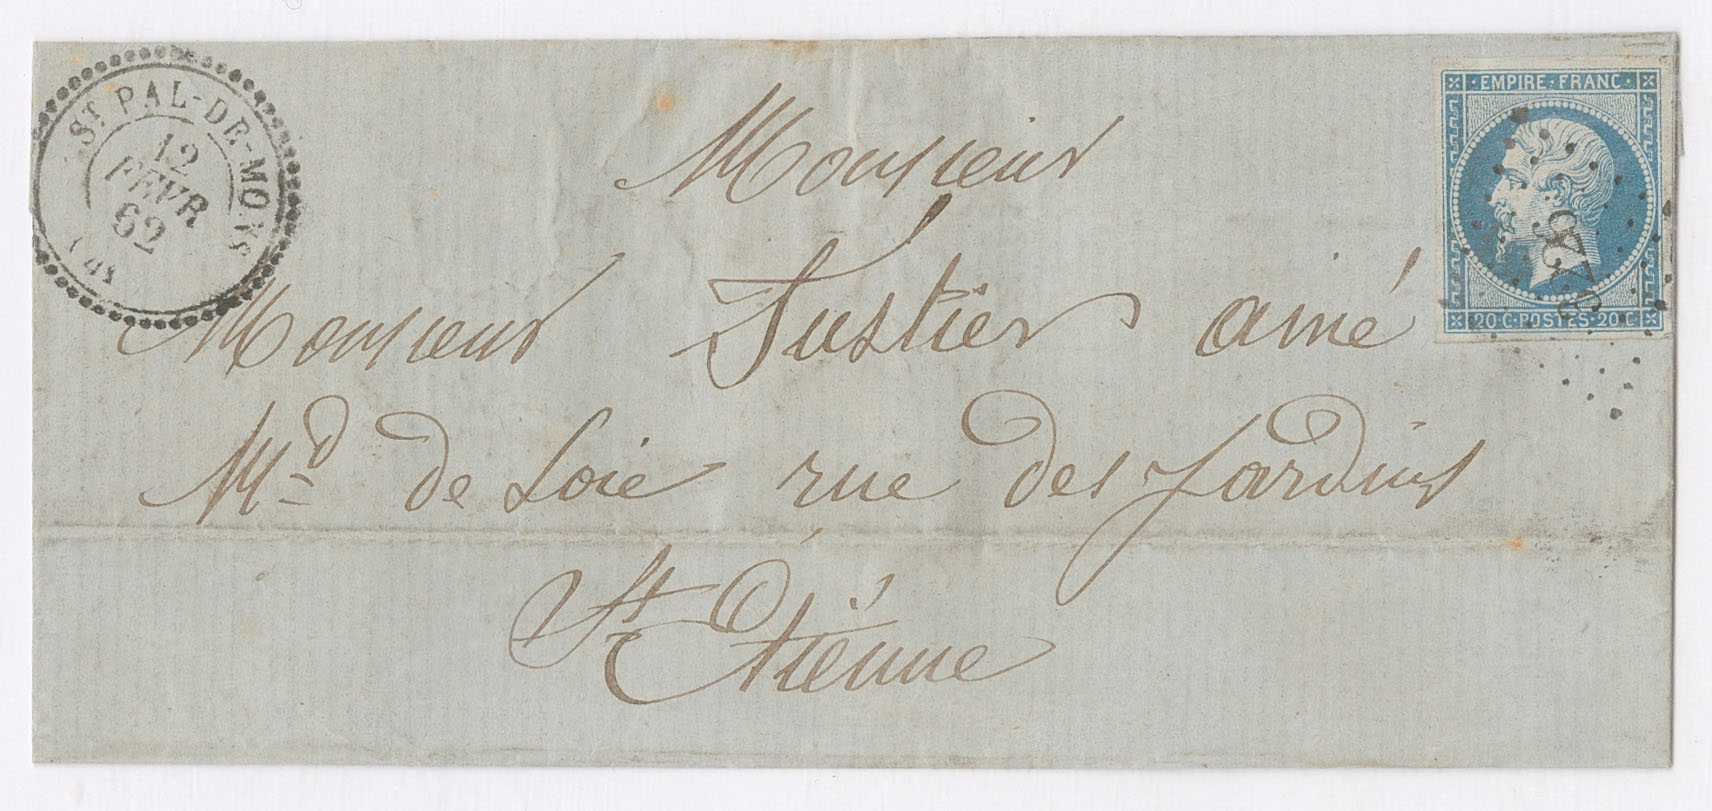 ST PAL-DE-MONS
12
FEVR
62
EMPIRE·FRANC·
20·C·POSTES·20·C·
Monsieur
Monsieur Sustier ainé
Md de Soie rue des Jardins
St Etiénne